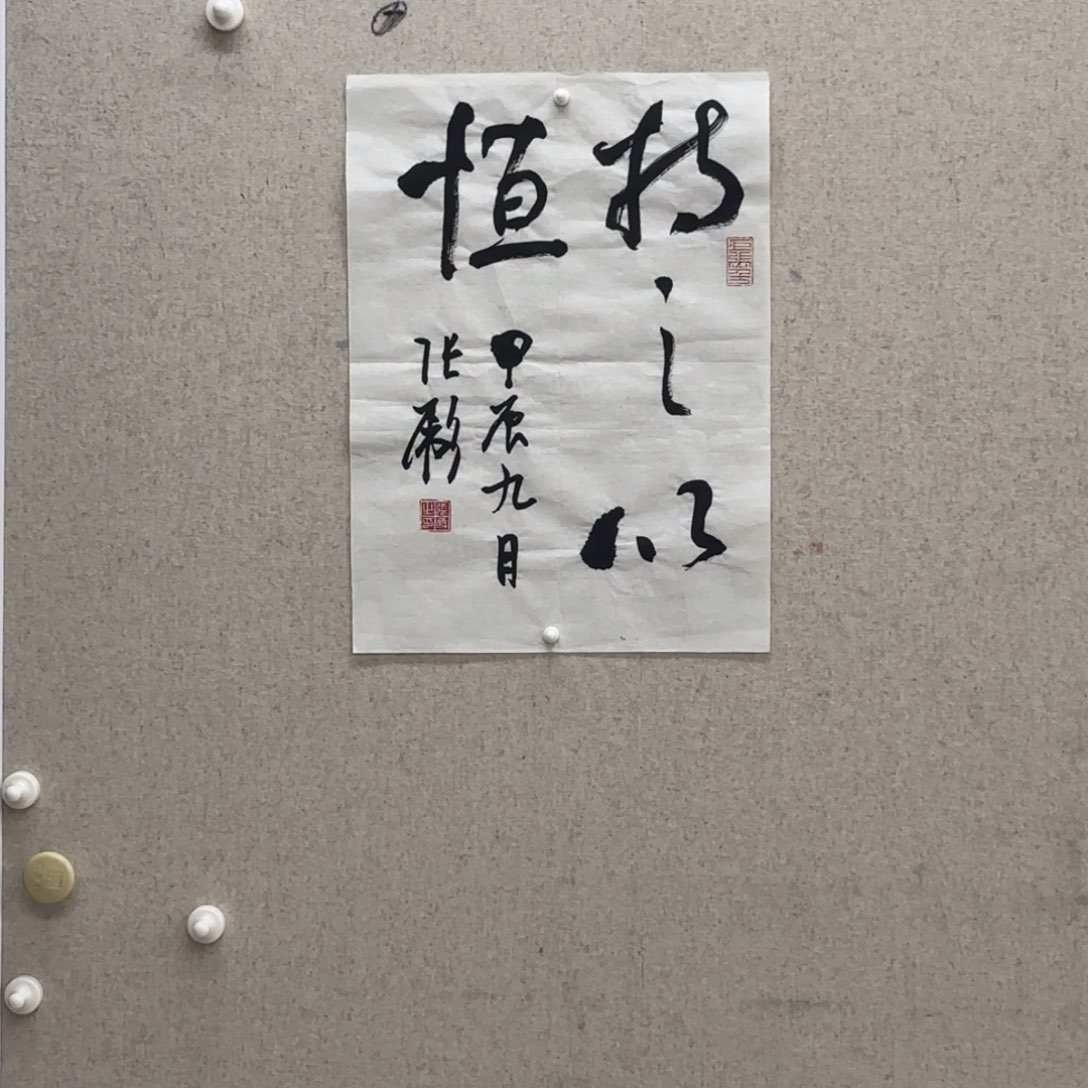 持之以
恒
甲辰九月
张